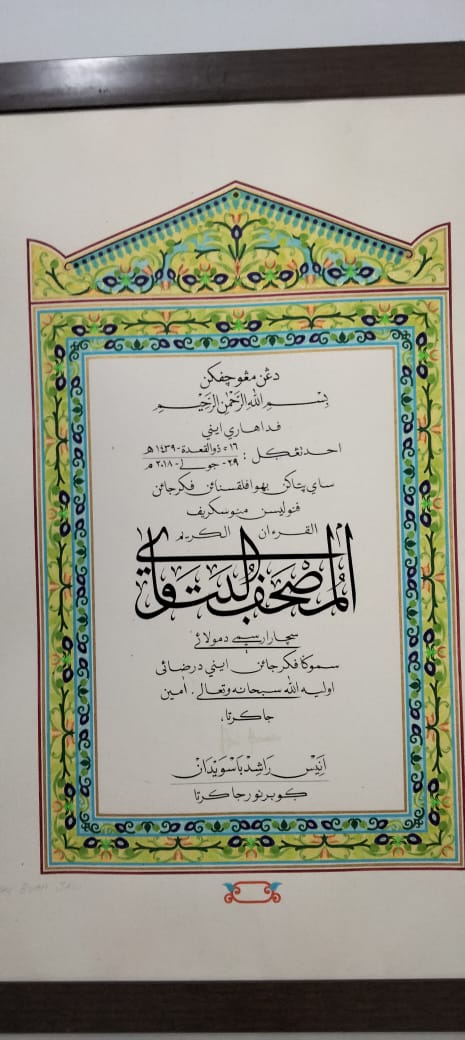 دڠن مڠوچفكن
بِسْمِ اللهِ الرَّحْمٰنِ الرَّحِيْمِ
فداهاري ايني
احد تڠݢل : ١٦- ذوالقعدة - ١٤٣٩ هـ
٢٩- جولي - ٢٠١٨ م
ساي پتاكن بهوا فلقسنائن فكرجائن
فنوليسن منوسكريف
القرءان الكريم
المُصْحَف البَتَاوِي
سچارا رسمي دمولائي
سموݢا فكرجائن ايني درضائي
اوليه الله سبحانه وتعالى. امين
جاكرتا،
اَنِيْس رَاشِد بَاسْوَيْدَان
ݢوبرنور جاكرتا